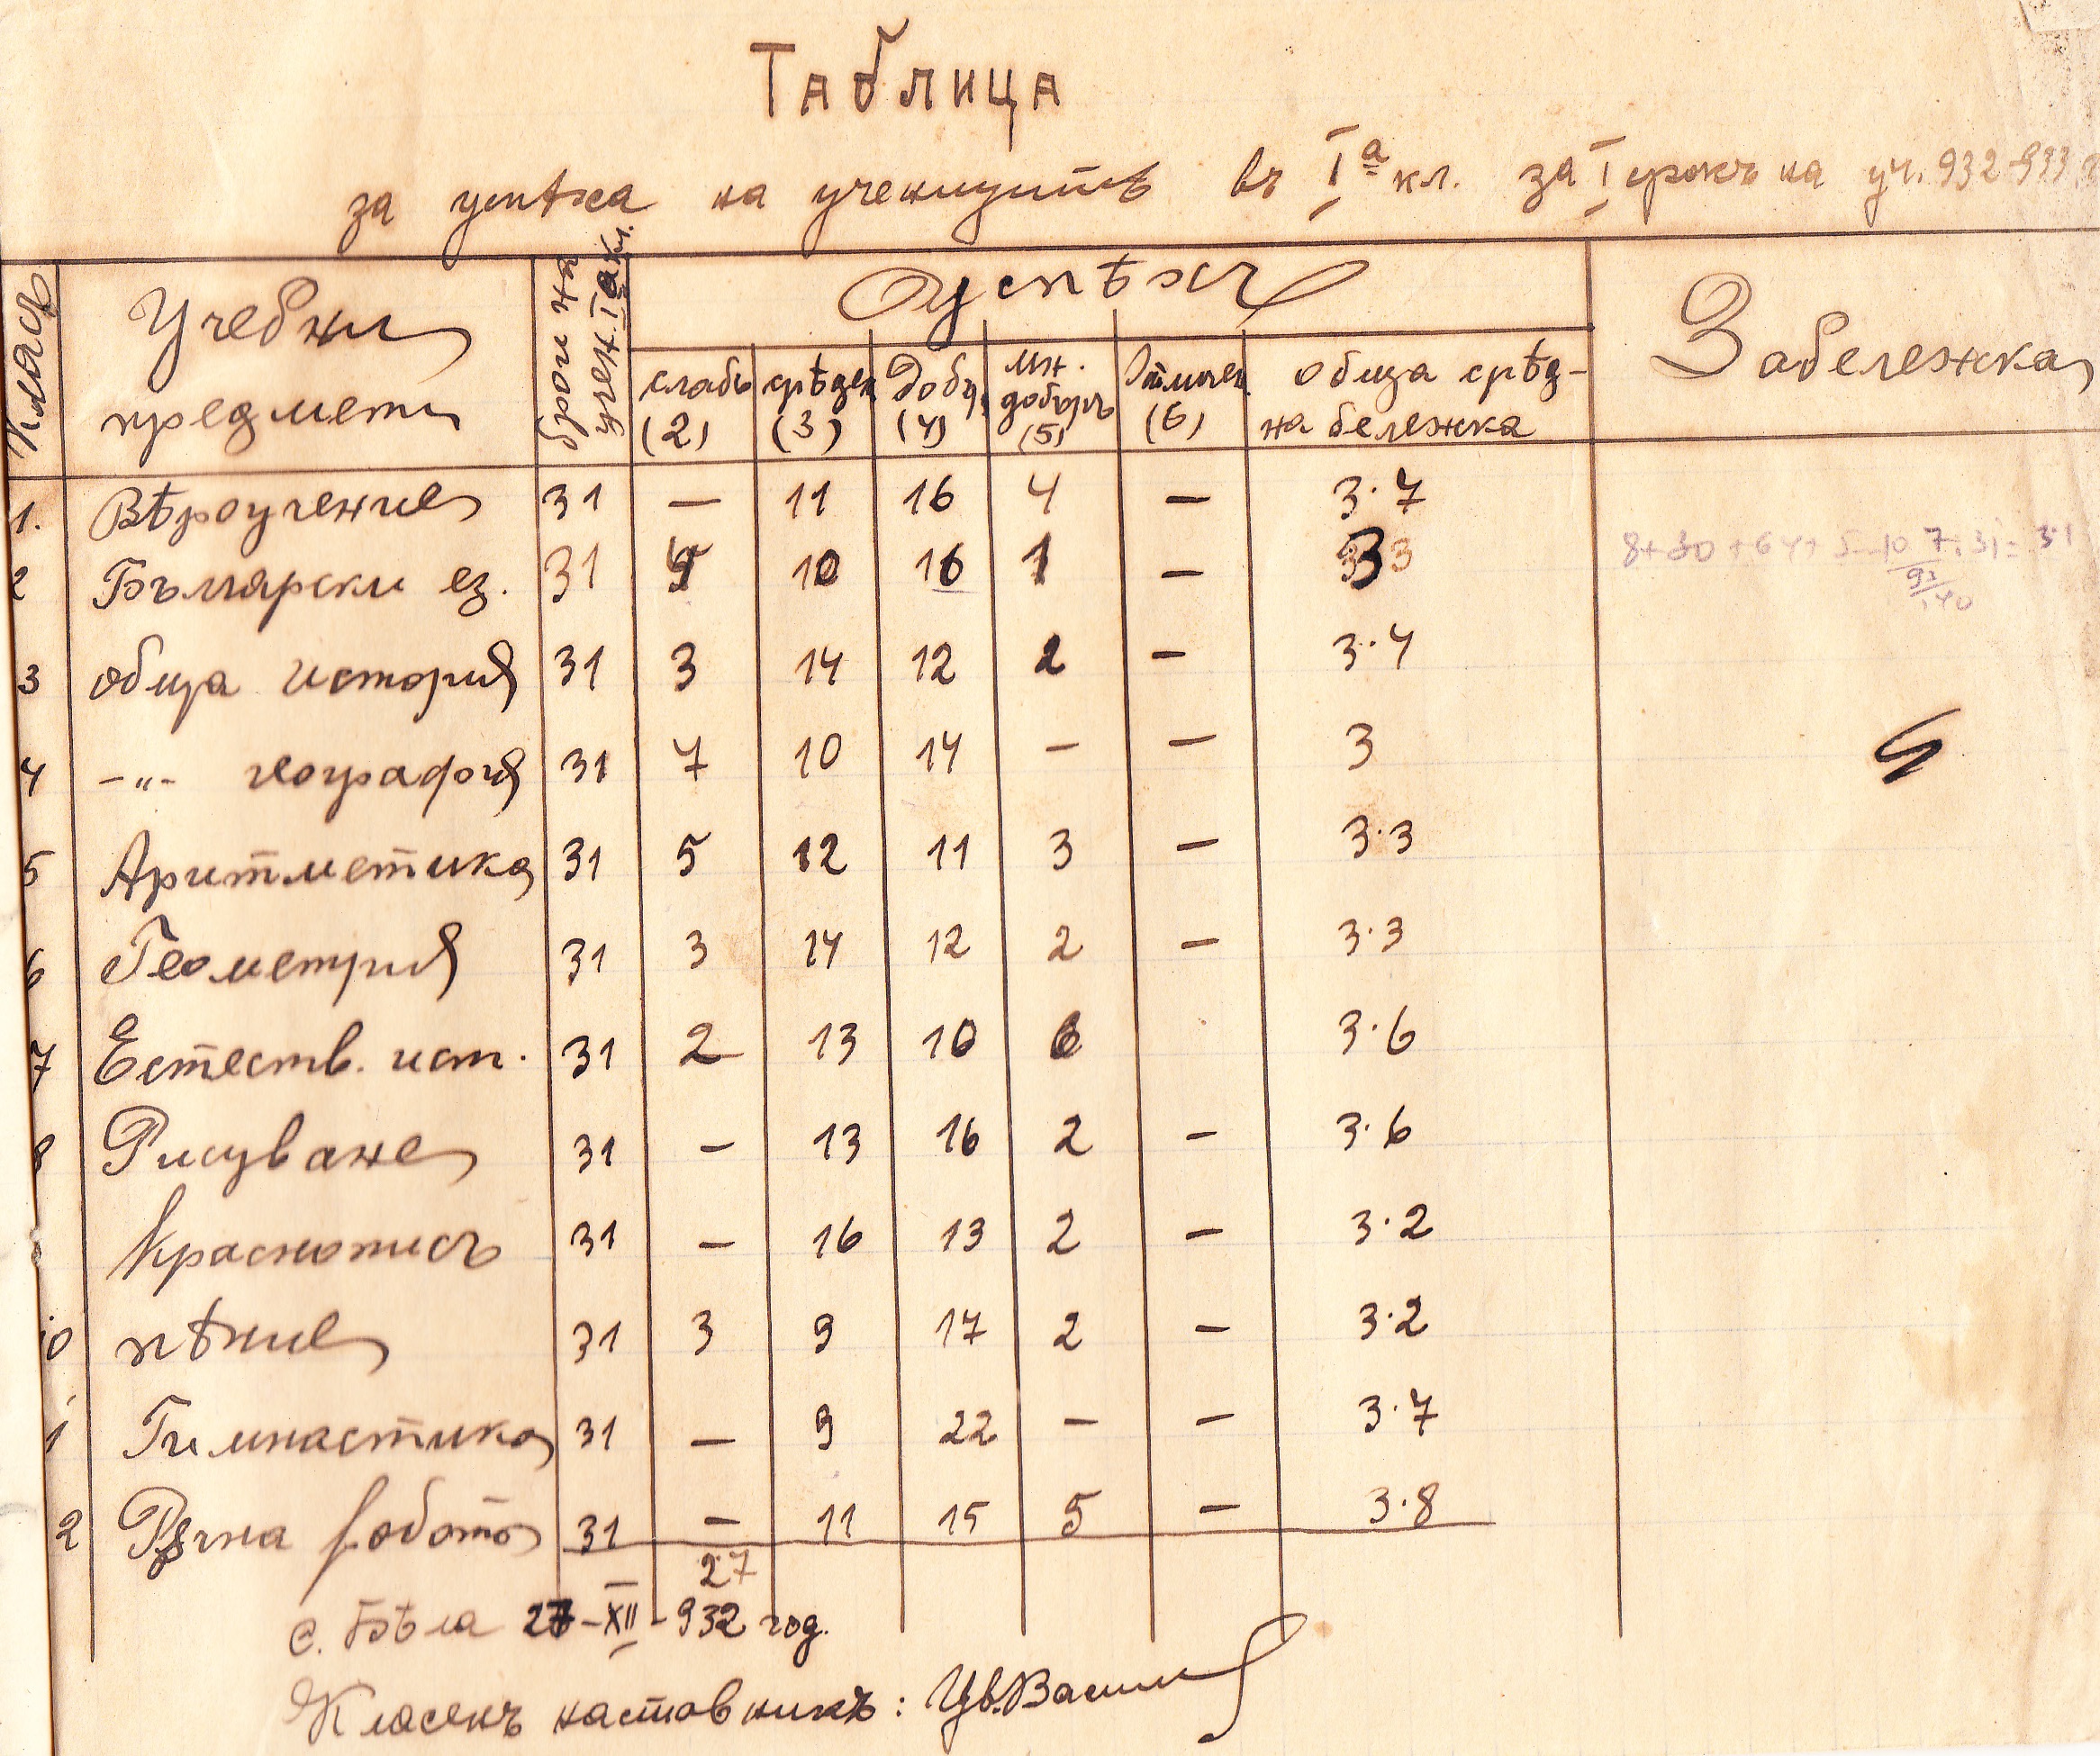 Таблица
за успѣха на ученицитѣ въ Iа кл. за I срокъ на уч. 932-933
Класъ
Учебни предмети
брой на учен. Iа кл.
Успѣхъ
Забележка
слабъ (2) срѣден (3) добъ. (4) мн. добъръ (5) Отличен (6) обща срѣд-на бележка
1. Вѣроучение 31 — 11 16 4 — 3.7
2 Български ез. 31 10 16 1 — 3
8+30+64+5
3 обща история 31 3 14 12 2 — 3.4
4 -"- география 31 7 10 14 — — 3
5 Аритметика 31 5 12 11 3 — 3.3
6 Геометрия 31 3 14 12 2 — 3.3
7 Естеств. ист. 31 2 13 10 6 3.6
8 Рисуване 31 — 13 16 2 — 3.6
Краснописъ 31 — 16 13 2 — 3.2
10 пѣние 31 3 9 17 2 — 3.2
1 Гимнастика 31 — 9 22 — — 3.7
2 Рѫчна работа 31 — 11 15 5 — 3.8
27
с. Бѣла 27-XII-932 год.
Класенъ наставникъ: Цв. Васил